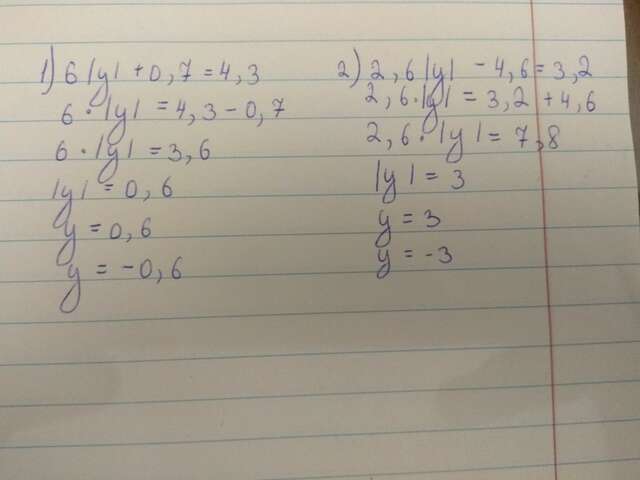 1) 6|y| + 0,7 = 4,3
6 · |y| = 4,3 - 0,7
6 · |y| = 3,6
|y| = 0,6
y = 0,6
y = -0,6
2) 2,6|y| - 4,6 = 3,2
2,6·|y| = 3,2 + 4,6
2,6 · |y| = 7,8
|y| = 3
y = 3
y = -3